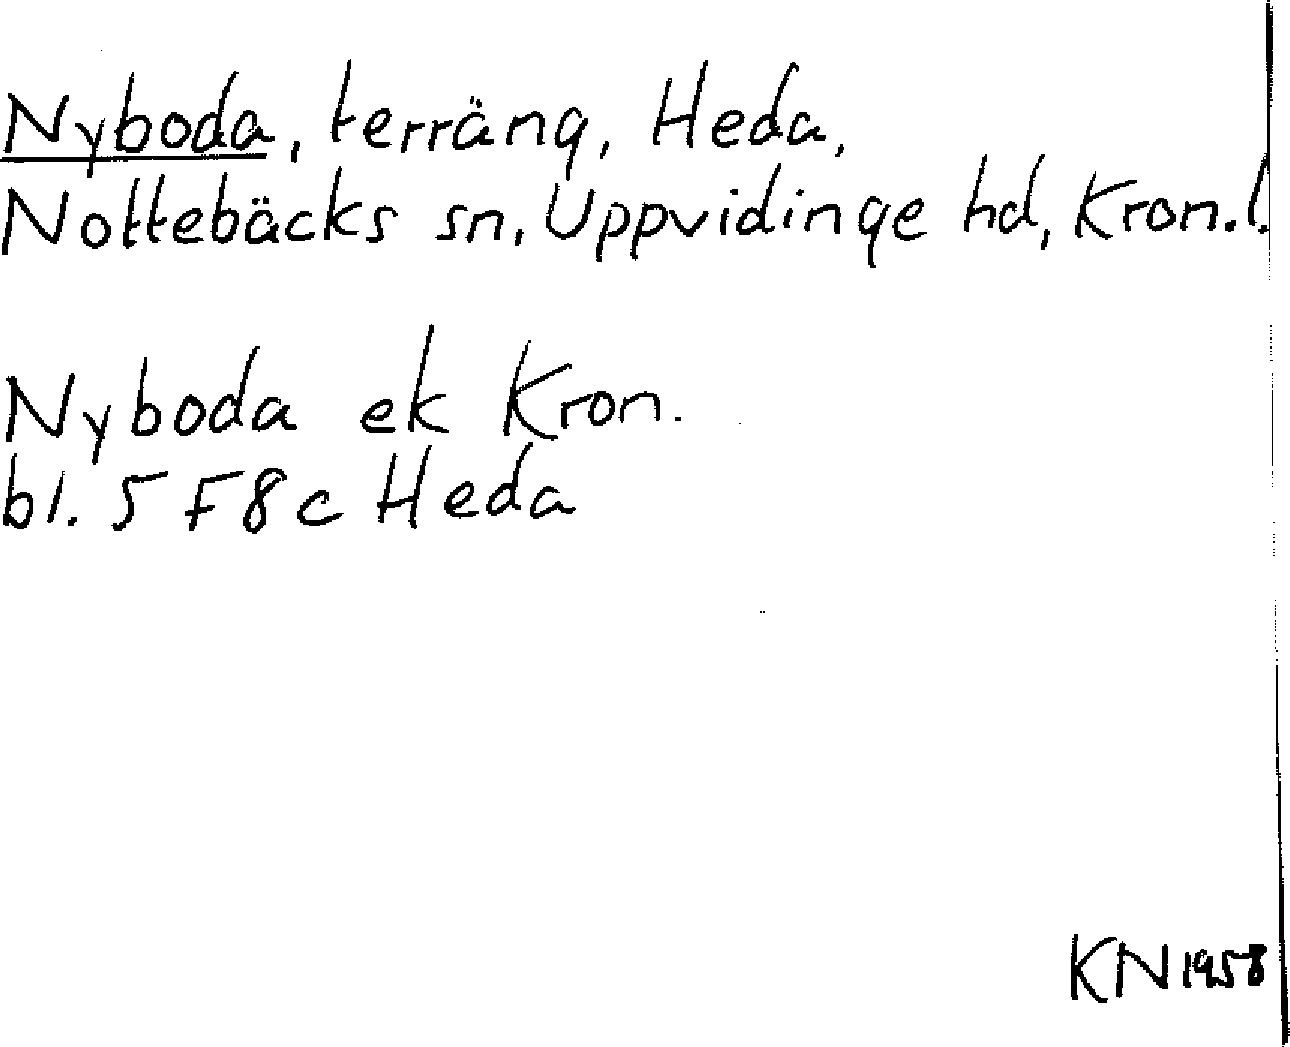 Nyboda, terräng, Heda,
Nottebäcks sn, Uppvidinge hd, Kron.l.
Nyboda ek Kron.
bl. 5 F8c Heda
KN 1958